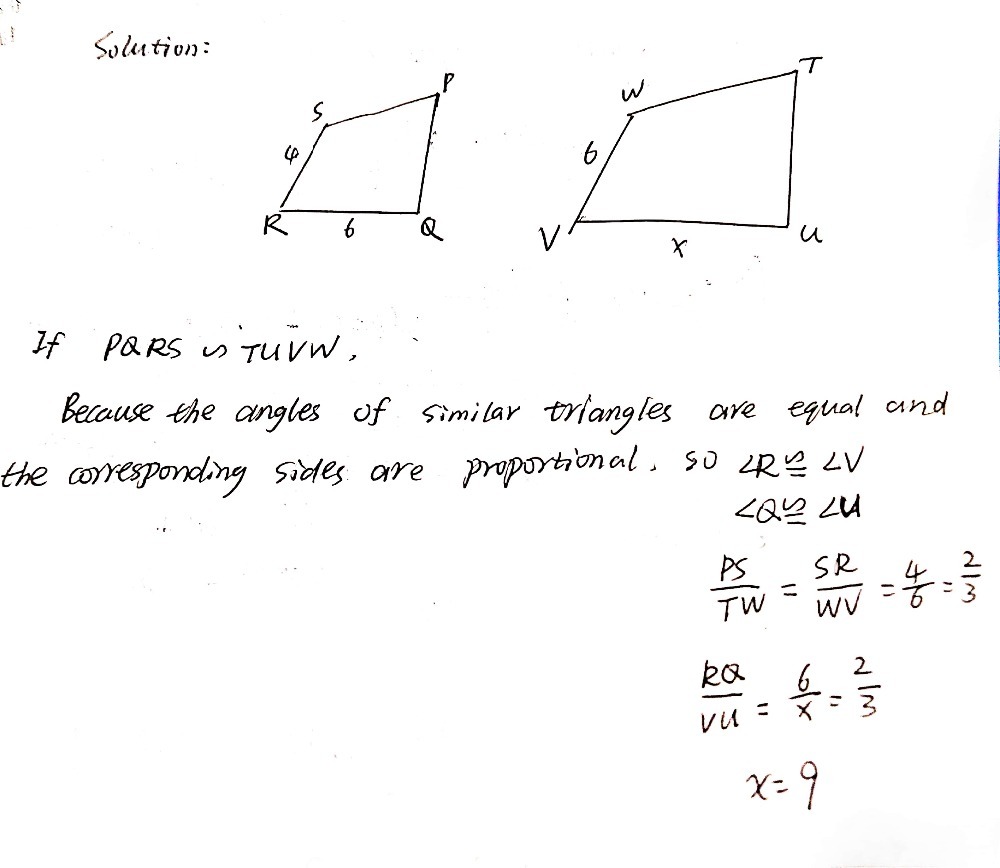 Solution:
P
S
4
R
6
Q
T
W
6
V
x
U
If PQRS ∽ TUVW.
Because the angles of similar triangles are equal and
the corresponding sides are proportional. so ∠R≌∠V
∠Q≌∠U
PS/TW = SR/WV = 4/6 = 2/3
RQ/VU = 6/x = 2/3
x=9